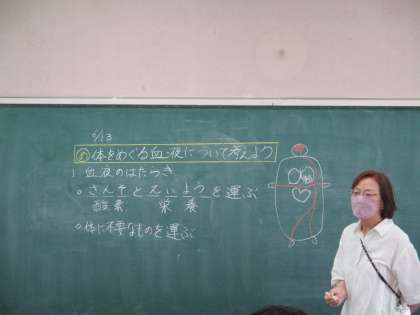 6/13
め 体をめぐる血液について考えよう
1 血液のはたらき
○ さんそとえいようを運ぶ
酸素 栄養
○ 体に不要なものを運ぶ